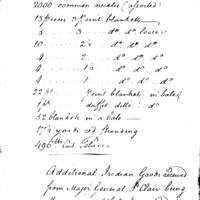 2000 common needles (assorted)
13 pieces 3 point blankets
5 .... 3 . do do loose
10 .... 2½ . do do
4 .... 2 . do do
2 .... 1½ do do
22 pt point blankets, in bales
1 pt duffel ditto : do
52 blankets in a bale
17¼ yards red Strouding
496 lbs Tobacco
Additional Indian Goods received
from Major General St Clair being